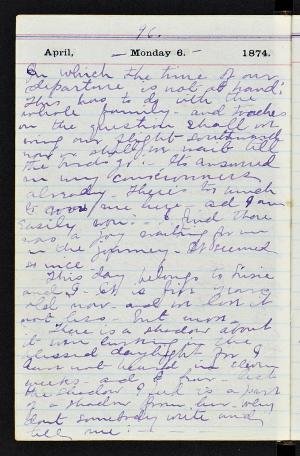 96.
April, — Monday 6. — 1874.
In which the time of our
departure is not at hand:
This has to do with the
whole family - and touches
on the question shall we
wing our flight southward
now or shall we wait till
the
in my consciousness
already there's to much
to me here - and I am
easily I find there
was a joy waiting for me
in the journey - It seemed
so nice.
This day belongs to
and I - It is five years
old now - and we love it
not less - but more.
There is a shadow about
it now lurking in the
blessed daylight - for I
have not heard in
weeks - and I fear - lest
the shadow I feel is a part
of a shadow from her. Why
dont somebody write and
tell me! -